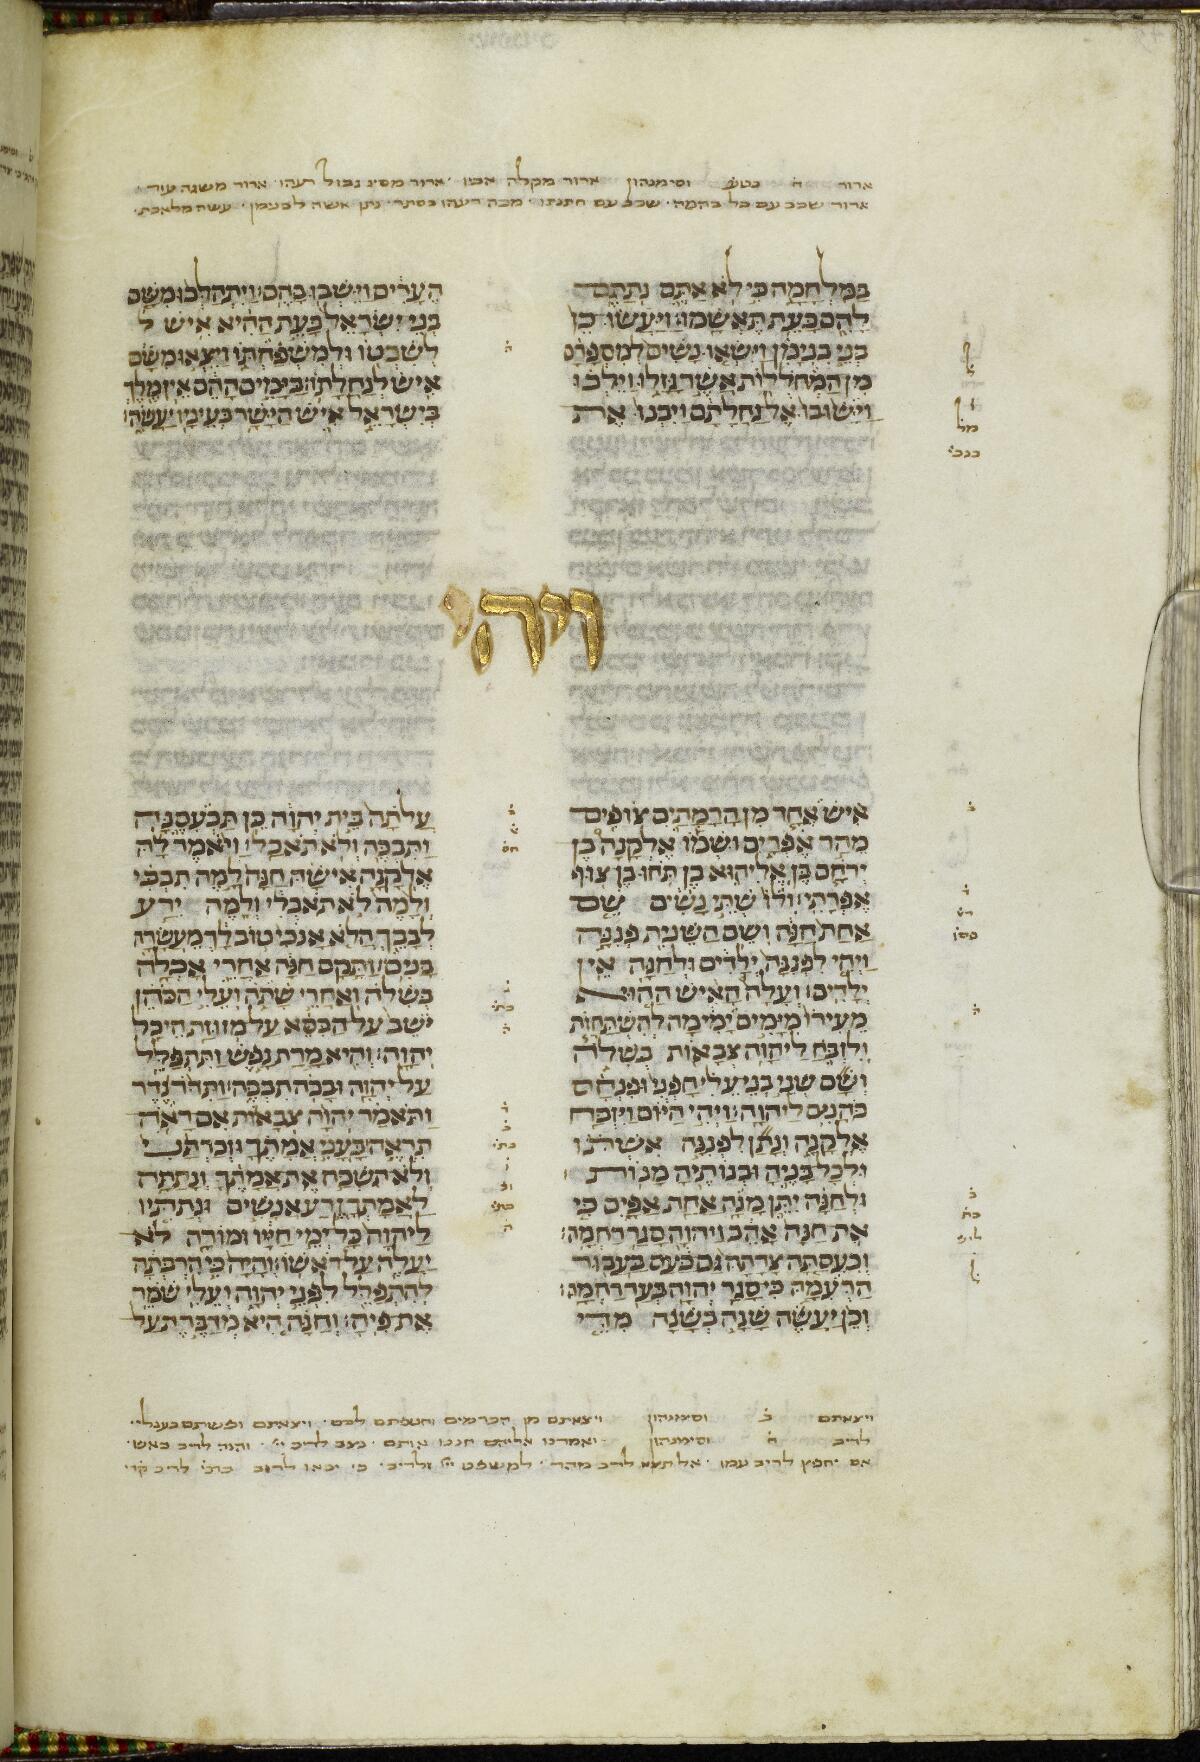 ארור ה בטע וסימנהון ארור מקלה אביו ארור מסיג גבול רעהו ארור משגה עור
ארור שכב עם כל בהמה שכב עם חתנתו מכה רעהו בסתר נתן אשה לבנימן
בַּמִּלְחָמָה כִּי לֹא אַתֶּם נְתַתֶּם
לָהֶם כָּעֵת תֶּאְשָׁמוּ׃ וַיַּעֲשׂוּ כֵן
בְּנֵי בִנְיָמִן וַיִּשְׂאוּ נָשִׁים לְמִסְפָּרָם
מִן הַמְּחֹלְלוֹת אֲשֶׁר גָּזָלוּ וַיֵּלְכוּ
וַיָּשׁוּבוּ אֶל נַחֲלָתָם וַיִּבְנוּ אֶת
הֶעָרִים וַיֵּשְׁבוּ בָּהֶם׃ וַיִּתְהַלְּכוּ מִשָּׁם
בְּנֵי יִשְׂרָאֵל בָּעֵת הַהִיא אִישׁ ל
לְשִׁבְטוֹ וּלְמִשְׁפַּחְתּוֹ וַיֵּצְאוּ מִשָּׁם
אִישׁ לְנַחֲלָתוֹ׃ בַּיָּמִים הָהֵם אֵין מֶלֶךְ
בְּיִשְׂרָאֵל אִישׁ הַיָּשָׁר בְּעֵינָיו יַעֲשֶׂה׃
ויהי
אִישׁ אֶחָד מִן הָרָמָתַיִם צוֹפִים
מֵהַר אֶפְרָיִם וּשְׁמוֹ אֶלְקָנָה בֶּן
יְרֹחָם בֶּן אֱלִיהוּא בֶּן תֹּחוּ בֶן צוּף
אֶפְרָתִי׃ וְלוֹ שְׁתֵּי נָשִׁים שֵׁם
אַחַת חַנָּה וְשֵׁם הַשֵּׁנִית פְּנִנָּה
וַיְהִי לִפְנִנָּה יְלָדִים וּלְחַנָּה אֵין
יְלָדִים׃ וְעָלָה הָאִישׁ הַהוּא
מֵעִירוֹ מִיָּמִים יָמִימָה לְהִשְׁתַּחֲוֺת
וְלִזְבֹּחַ לַיהוָה צְבָאוֹת בְּשִׁלֹה
וְשָׁם שְׁנֵי בְנֵי עֵלִי חָפְנִי וּפִנְחָס
כֹּהֲנִים לַיהוָה׃ וַיְהִי הַיּוֹם וַיִּזְבַּח
אֶלְקָנָה וְנָתַן לִפְנִנָּה אִשְׁתּוֹ
וּלְכָל בָּנֶיהָ וּבְנוֹתֶיהָ מָנוֹת׃
וּלְחַנָּה יִתֵּן מָנָה אַחַת אַפָּיִם כִּי
אֶת חַנָּה אָהֵב וַיהוָה סָגַר רַחְמָהּ׃
וְכִעֲסַתָּה צָרָתָהּ גַּם כַּעַס בַּעֲבוּר
הַרְּעִמָהּ כִּי סָגַר יְהוָה בְּעַד רַחְמָהּ׃
וְכֵן יַעֲשֶׂה שָׁנָה בְשָׁנָה מִדֵּי
עֲלֹתָהּ בְּבֵית יְהוָה כֵּן תַּכְעִסֶנָּה
וַתִּבְכֶּה וְלֹא תֹאכַל׃ וַיֹּאמֶר לָהּ
אֶלְקָנָה אִישָׁהּ חַנָּה לָמֶה תִבְכִּי
וְלָמֶה לֹא תֹאכְלִי וְלָמֶה יֵרַע
לְבָבֵךְ הֲלֹא אָנֹכִי טוֹב לָךְ מֵעֲשָׂרָה
בָּנִים׃ וַתָּקָם חַנָּה אַחֲרֵי אָכְלָה
בְשִׁלֹה וְאַחֲרֵי שָׁתֹה וְעֵלִי הַכֹּהֵן
יֹשֵׁב עַל הַכִּסֵּא עַל מְזוּזַת הֵיכַל
יְהוָה׃ וְהִיא מָרַת נָפֶשׁ וַתִּתְפַּלֵּל
עַל יְהוָה וּבָכֹה תִבְכֶּה׃ וַתִּדֹּר נֶדֶר
וַתֹּאמַר יְהוָה צְבָאוֹת אִם רָאֹה
תִרְאֶה בָּעֳנִי אֲמָתֶךָ וּזְכַרְתַּנִי
וְלֹא תִשְׁכַּח אֶת אֲמָתֶךָ וְנָתַתָּה
לַאֲמָתְךָ זֶרַע אֲנָשִׁים וּנְתַתִּיו
לַיהוָה כָּל יְמֵי חַיָּיו וּמוֹרָה לֹא
יַעֲלֶה עַל רֹאשׁוֹ׃ וְהָיָה כִּי הִרְבְּתָה
לְהִתְפַּלֵּל לִפְנֵי יְהוָה וְעֵלִי שֹׁמֵר
אֶת פִּיהָ׃ וְחַנָּה הִיא מְדַבֶּרֶת עַל
ויצאתם ב וסימנהון ויצאתם מן הכרמים וחטפתם לכם ויצאתם ופשתם כעגלי
לריב ה וסימנהון ואמרנו אליהם חננו אותם נצב לריב יי והנה לריב באש
אם יחפץ לריב עמו אל תצא לריב מהר למשפט ולריב כי יבאו לריב